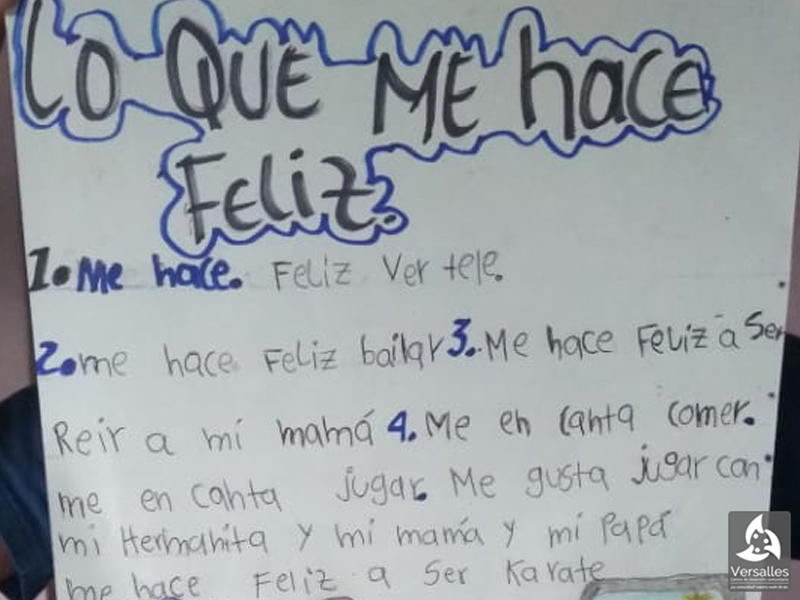 Lo QUE ME hace
Feliz.
1. Me hace. Feliz Ver tele.
2. me hace Feliz bailar 3. Me hace Feliz a Ser
Reir a mi mamá 4. Me en canta comer.
me en canta jugar. Me gusta jugar con
mi Hermanita y mi mamá y mi Papá
me hace Feliz a Ser Karate
Versalles